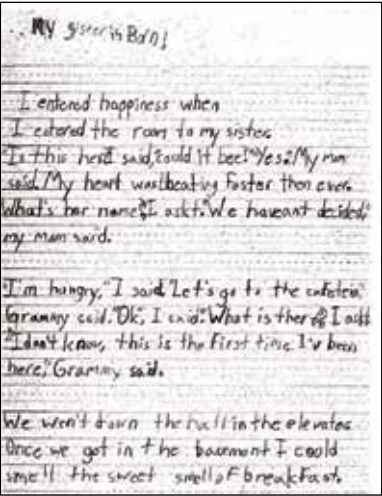 My sister is Born!
I entered happiness when
I entered the room to my sister.
"Is this her I said, "could it bee!" "Yes." My mom
said. My heart was beating faster then ever.
What's her name," I askt. "We haveant decided,"
my mom said.
"I'm hungry," I said "Let's go to the cafeteia"
Grammy said. "Ok", I said. "What is there I askt
"I don't know, this is the first time I'v been
here," Grammy said.
We wen't down the hall in the elevator.
Once we got in the basment I could
smell the sweet smell of breakfast.